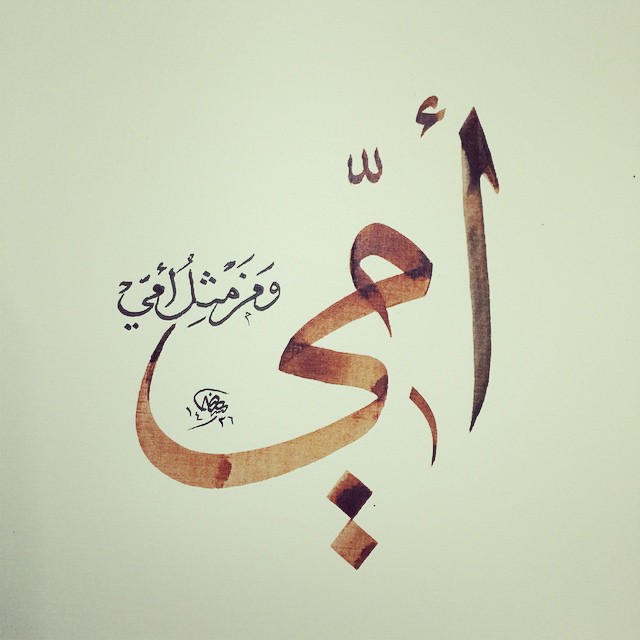 أمّي
وَمَن مثلِ أُمّي
١٤٣٦